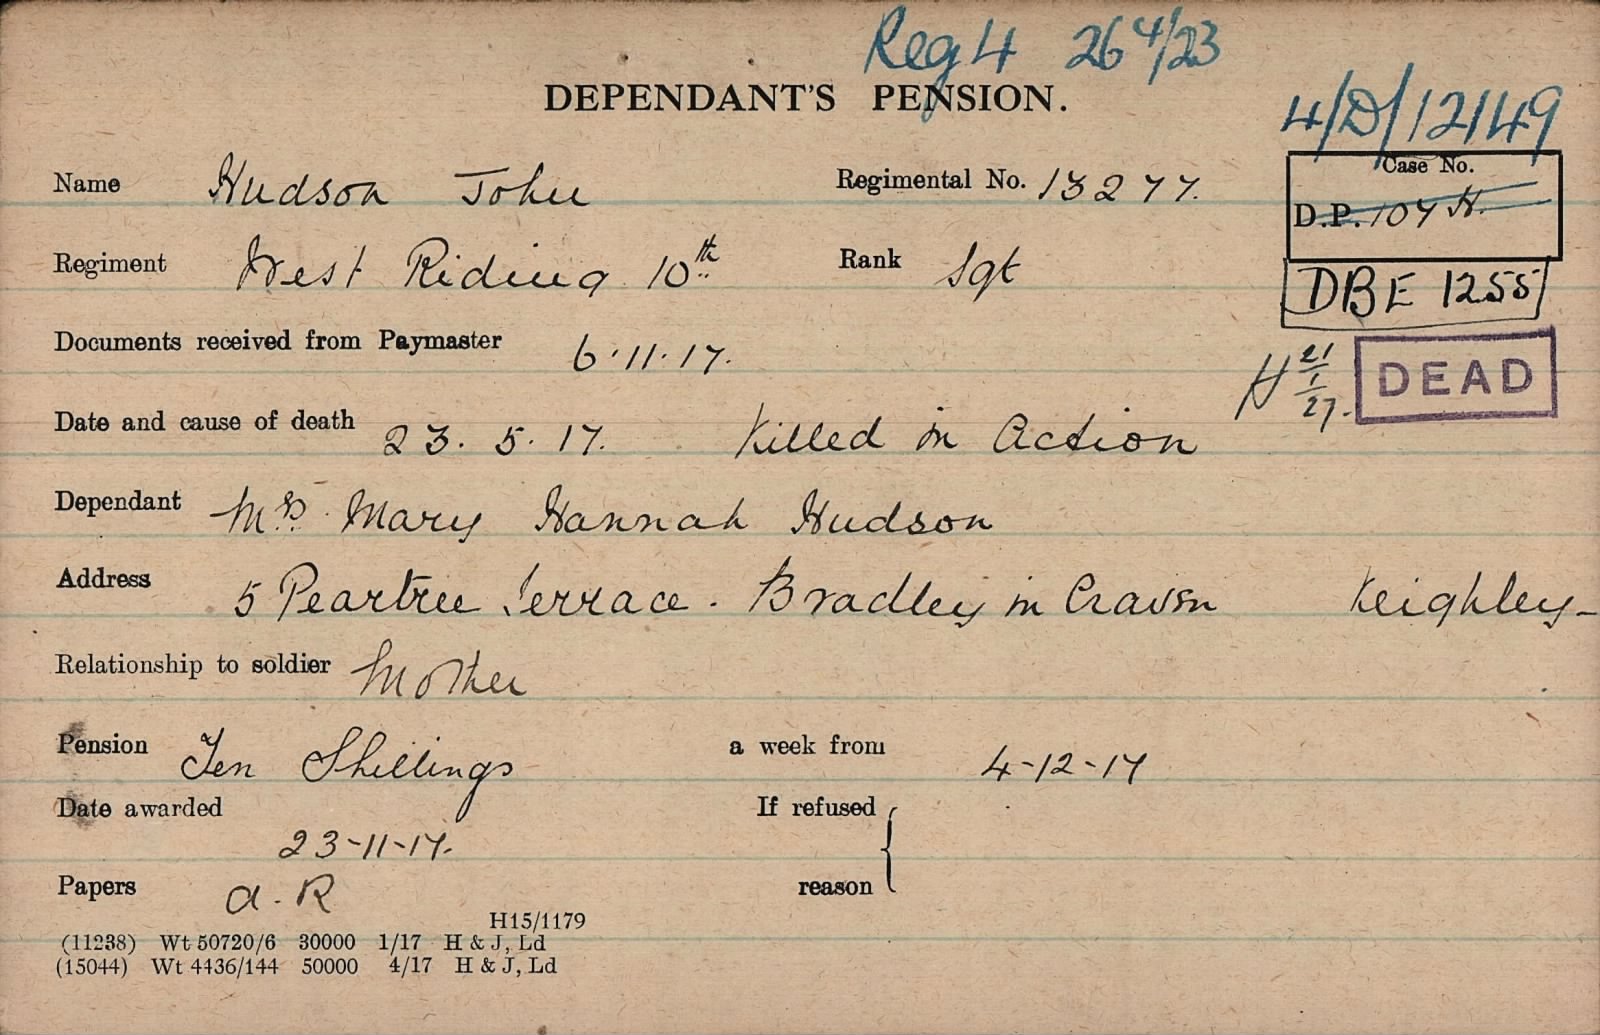 Reg 4 26 4/23
DEPENDANT'S PENSION.
4/D/12149
Name Hudson John Regimental No. 13277.
Case No.
D.P. 107 H.
Regiment West Riding 10th Rank Sgt
DBE 1255
Documents received from Paymaster 6.11.17.
H 21/1/27. DEAD
Date and cause of death 23. 5. 17. Killed in Action
Dependant Mrs. Mary Hannah Hudson
Address 5 Peartree Terrace. Bradley in Craven Keighley
Relationship to soldier Mother
Pension Ten Shillings a week from 4-12-17
Date awarded 23-11-17. If refused
Papers a. R reason
H15/1179
(11238) Wt 50720/6 30000 1/17 H & J, Ld
(15044) Wt 4436/144 50000 4/17 H & J, Ld